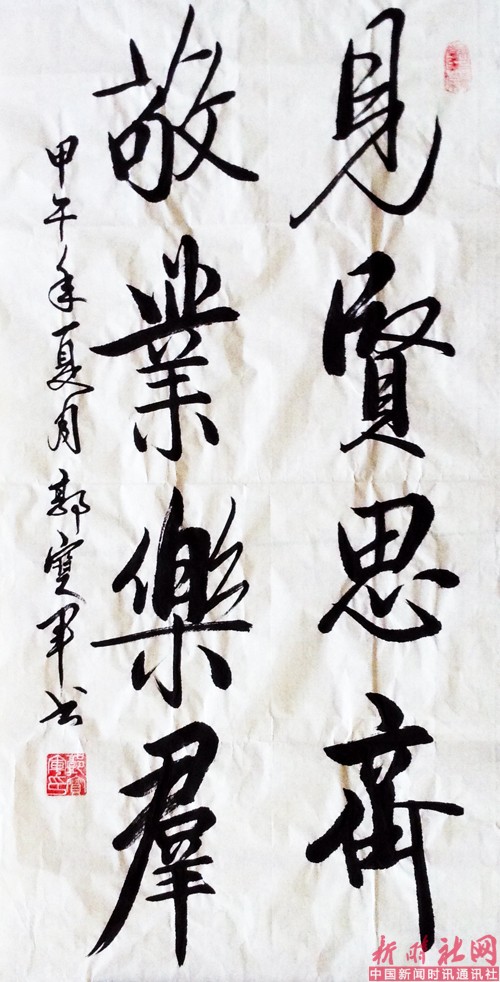 見賢思齊
敬業樂羣
甲午年夏月郭寶军书
郭寶軍印
新时社网
中国新闻时讯通讯社